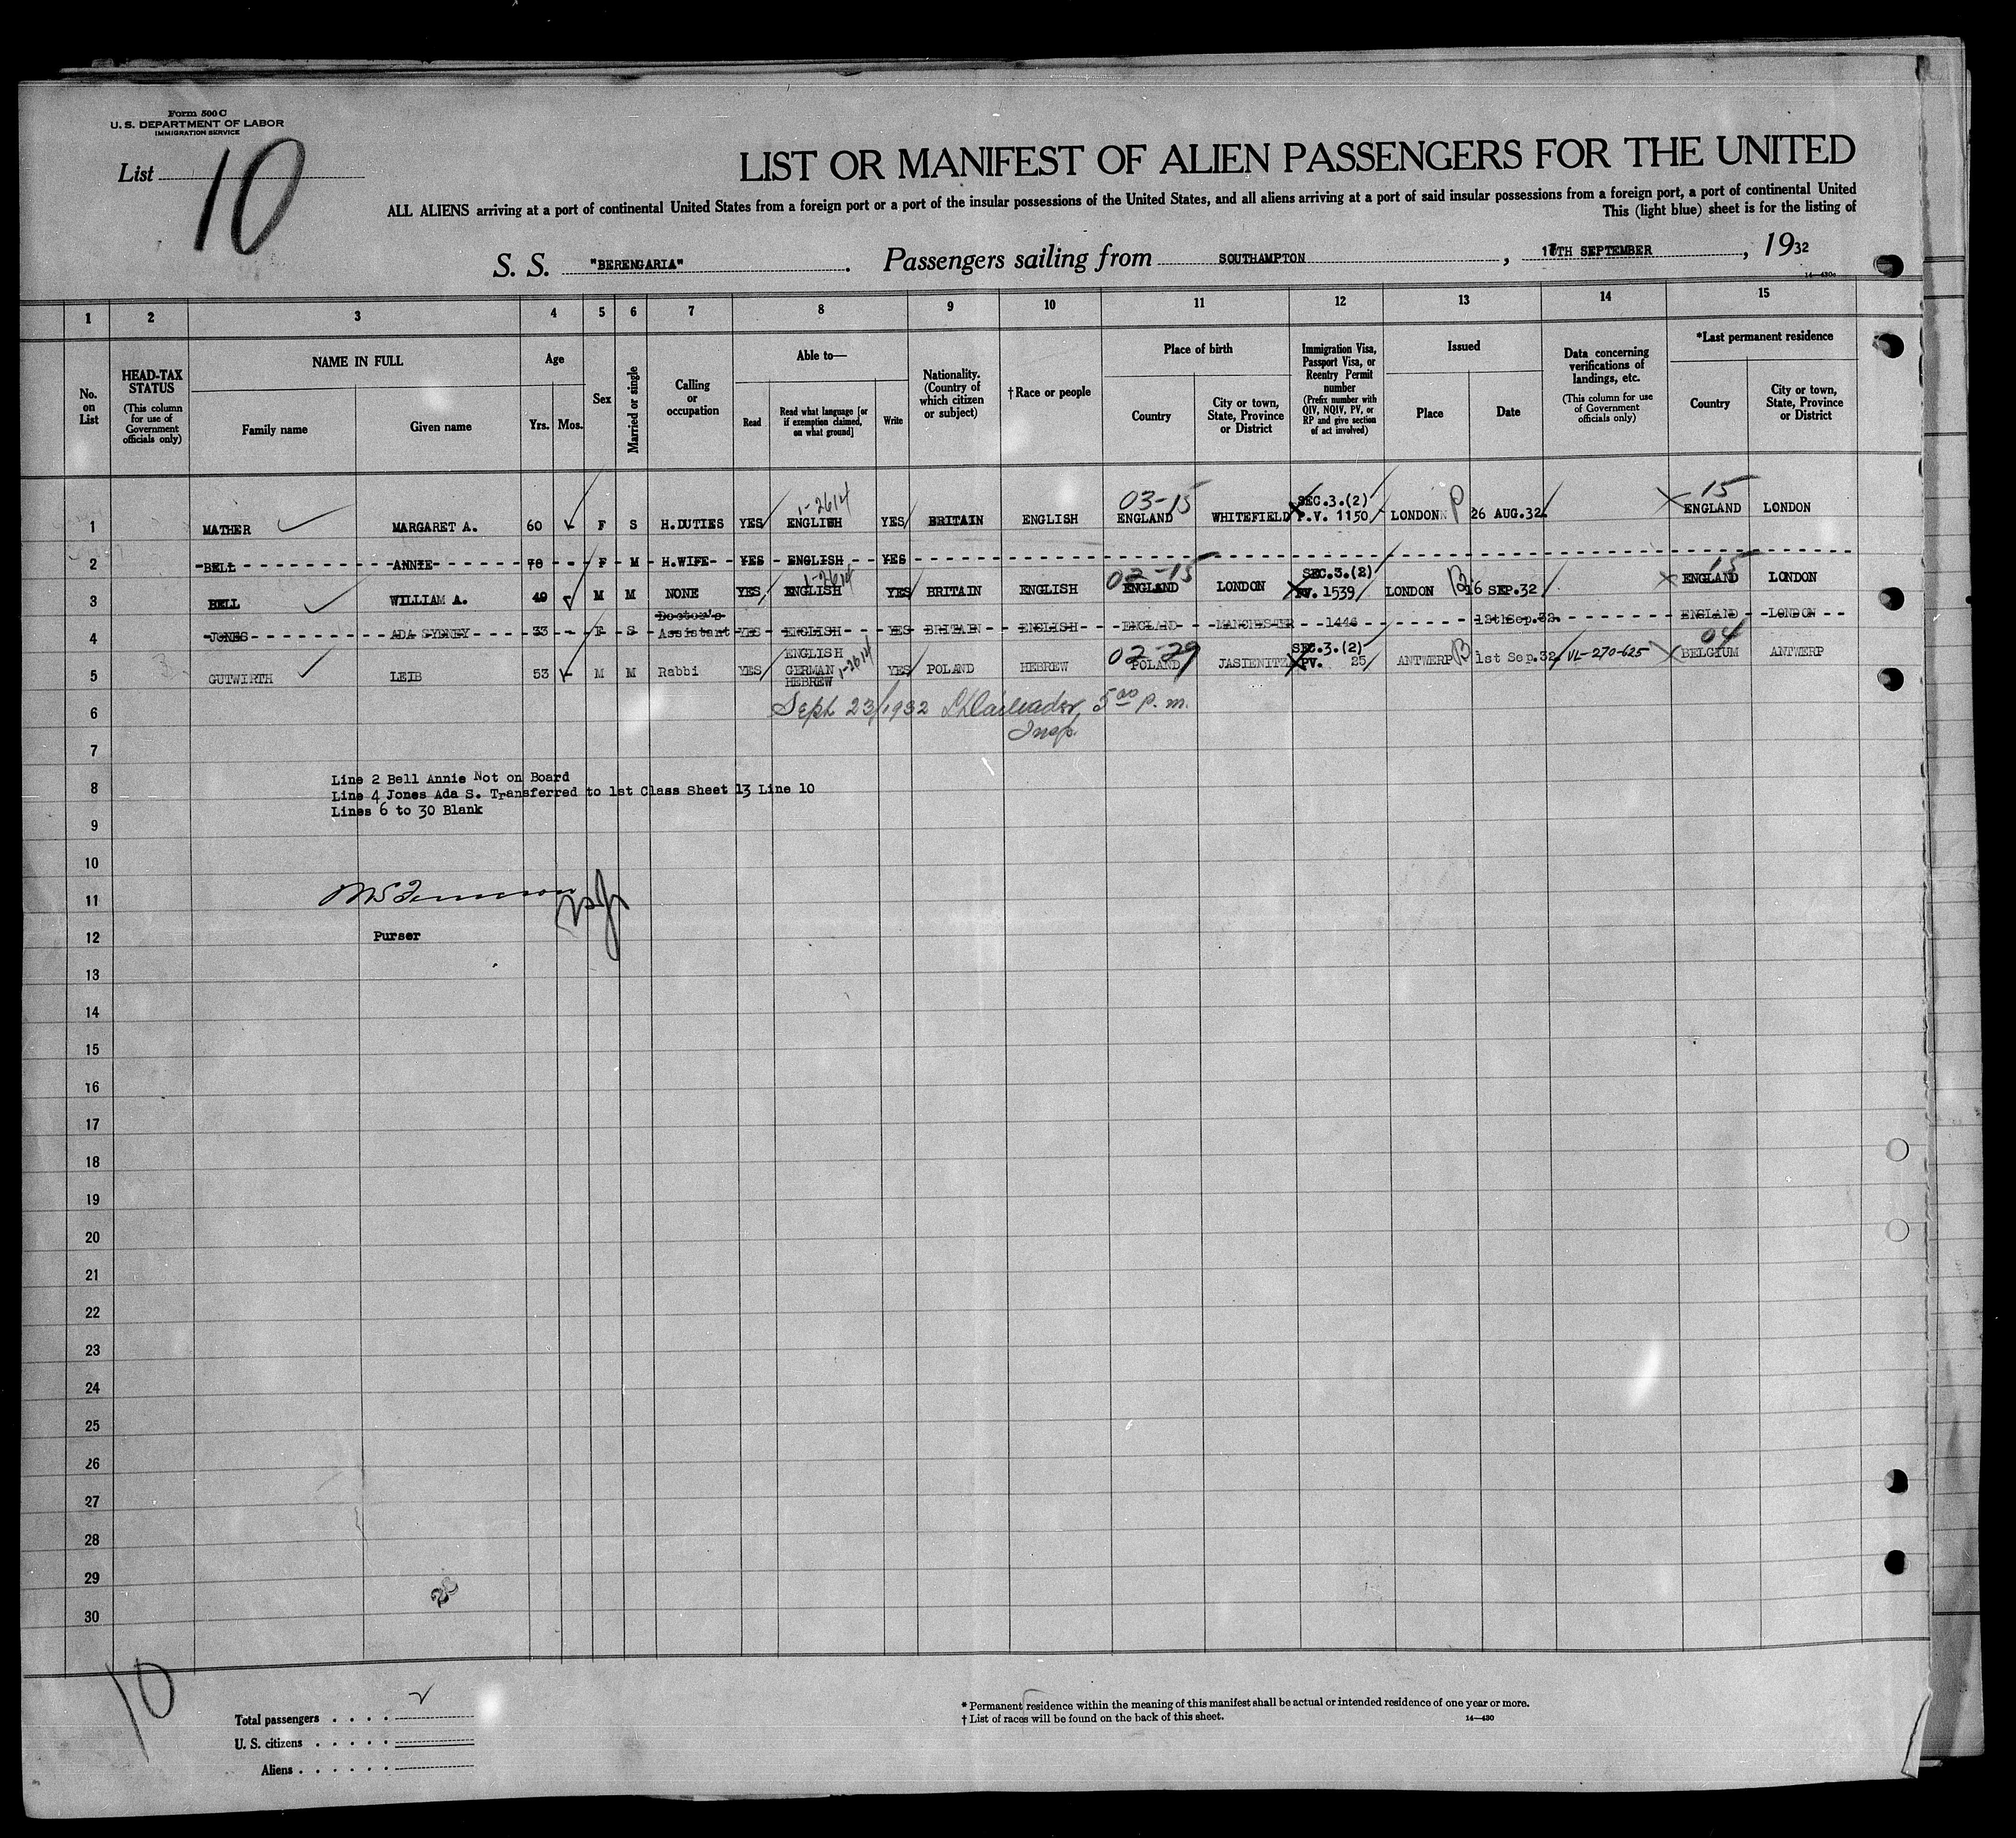 Form 500 C
U. S. DEPARTMENT OF LABOR
IMMIGRATION SERVICE
List 10
LIST OR MANIFEST OF ALIEN PASSENGERS FOR THE UNITED
ALL ALIENS arriving at a port of continental United States from a foreign port or a port of the insular possessions of the United States, and all aliens arriving at a port of said insular possessions from a foreign port, a port of continental United
This (light blue) sheet is for the listing of
S. S. "BERENGARIA". Passengers sailing from SOUTHAMPTON, 17TH SEPTEMBER, 1932
14—430c
1 2 3 4 5 6 7 8 9 10 11 12 13 14 15
No. on List
HEAD-TAX STATUS
(This column for use of Government officials only)
NAME IN FULL
Family name Given name
Age
Yrs. Mos.
Sex
Married or single
Calling or occupation
Able to—
Read
Read what language [or if exemption claimed, on what ground]
Write
Nationality. (Country of which citizen or subject)
†Race or people
Place of birth
Country
City or town, State, Province or District
Immigration Visa, Passport Visa, or Reentry Permit number
(Prefix number with QIV, NQIV, PV, or RP and give section of act involved)
Issued
Place Date
Data concerning verifications of landings, etc.
(This column for use of Government officials only)
*Last permanent residence
Country
City or town, State, Province or District
1-2614 03-15 SEC.3.(2) P 15
1 MATHER MARGARET A. 60 F S H.DUTIES YES ENGLISH YES BRITAIN ENGLISH ENGLAND WHITEFIELD P.V. 1150 LONDON 26 AUG.32 ENGLAND LONDON
2 BELL ANNIE 70 F M H.WIFE YES ENGLISH YES
1-2614 02-15 SEC.3.(2) B 15
3 BELL WILLIAM A. 49 M M NONE YES ENGLISH YES BRITAIN ENGLISH ENGLAND LONDON PV. 1539 LONDON 16 SEP.32 ENGLAND LONDON
4 JONES ADA SYDNEY 33 F S Doctor's Assistant YES ENGLISH YES BRITAIN ENGLISH ENGLAND MANCHESTER 1446 12thSep.32 ENGLAND LONDON
02-29 SEC.3.(2) B 04
5 GUTWIRTH LEIB 53 M M Rabbi YES ENGLISH GERMAN HEBREW 1-2614 YES POLAND HEBREW POLAND JASIENITZ PV. 25 ANTWERP 1st Sep.32 VL-270-625 BELGIUM ANTWERP
6 Sept 23/1932 5 00 p.m.
Insp
7
Line 2 Bell Annie Not on Board
8 Line 4 Jones Ada S. Transferred to 1st Class Sheet 13 Line 10
Lines 6 to 30 Blank
9
10
11
12 Purser
13
14
15
16
17
18
19
20
21
22
23
24
25
26
27
28
29
30
10
Total passengers
U. S. citizens
Aliens
* Permanent residence within the meaning of this manifest shall be actual or intended residence of one year or more.
† List of races will be found on the back of this sheet.
14—430